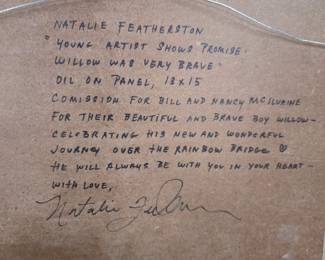 NATALIE FEATHERSTON
"YOUNG ARTIST SHOWS PROMISE.
WILLOW WAS VERY BRAVE"
OIL ON PANEL, 18x15
COMISSION FOR BILL AND NANCY MCILVAINE
FOR THEIR BEAUTIFUL AND BRAVE BOY WILLOW—
CELEBRATING HIS NEW AND WONDERFUL
JOURNEY OVER THE RAINBOW BRIDGE ♡
HE WILL ALWAYS BE WITH YOU IN YOUR HEART—
WITH LOVE,
Natalie